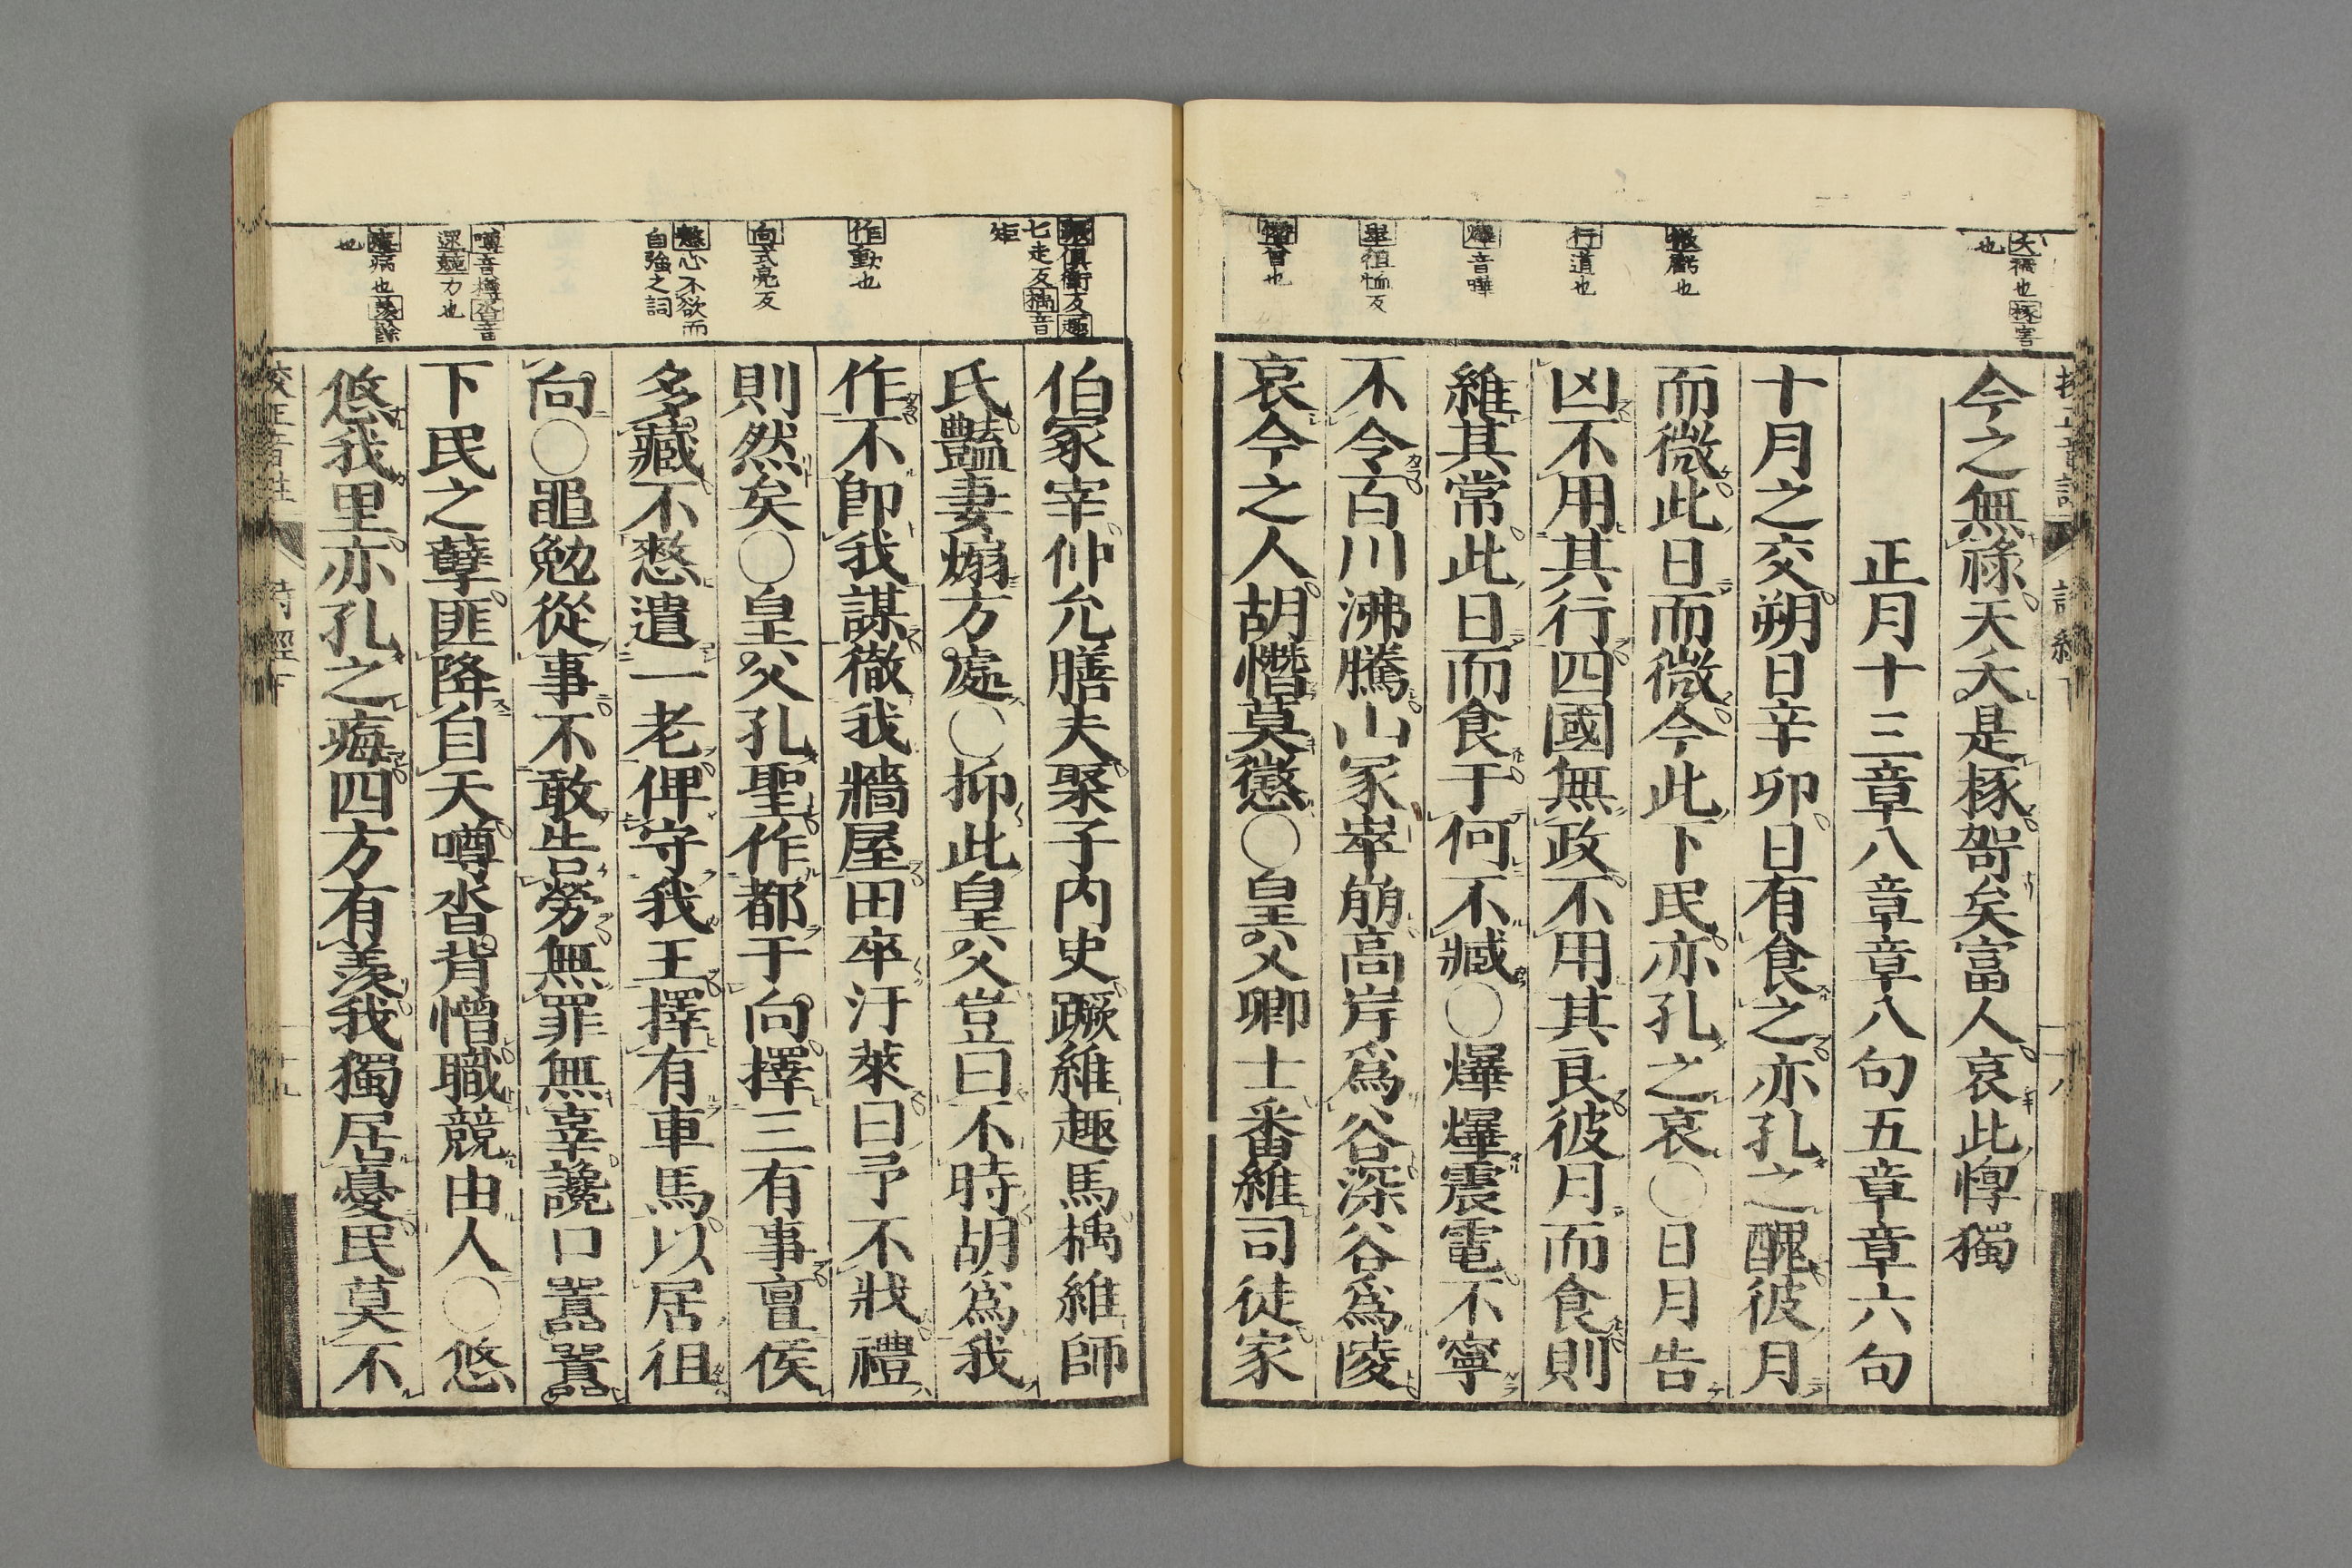 夭禍也椓害
也
今之無祿天夭是椓哿矣富人哀此惸獨
正月十三章八章章八句五章章六句
十月之交朔日辛卯日有食之亦孔之醜彼月
微虧也
而微此日而微今此下民亦孔之哀〇日月告
行道也
凶不用其行四國無政不用其良彼月而食則
維其常此日而食于何不臧〇爗爗震電不寧
爗音曄
不令百川沸騰山冢崒崩高岸爲谷深谷爲陵
崒徂恤反
哀今之人胡憯莫懲〇皇父卿士番維司徒家
憯曾也
蹶俱衛反趣
七走反楀音
矩
伯冢宰仲允膳夫聚子内史蹶維趣馬楀維師
氏豔妻煽方處〇抑此皇父豈曰不時胡爲我
作動也
作不卽我謀徹我牆屋田卒汙萊曰予不戕禮
向式亮反
則然矣〇皇父孔聖作都于向擇三有事亶侯
憖心不欲而
自強之詞
多藏不憖遺一老俾守我王擇有車馬以居徂
向〇黽勉從事不敢告勞無罪無辜讒口囂囂
噂音樽沓音
逻競力也
下民之孽匪降自天噂沓背憎職競由人〇悠
痗病也羨餘
也
悠我里亦孔之痗四方有羨我獨居憂民莫不
校正音註
詩經下